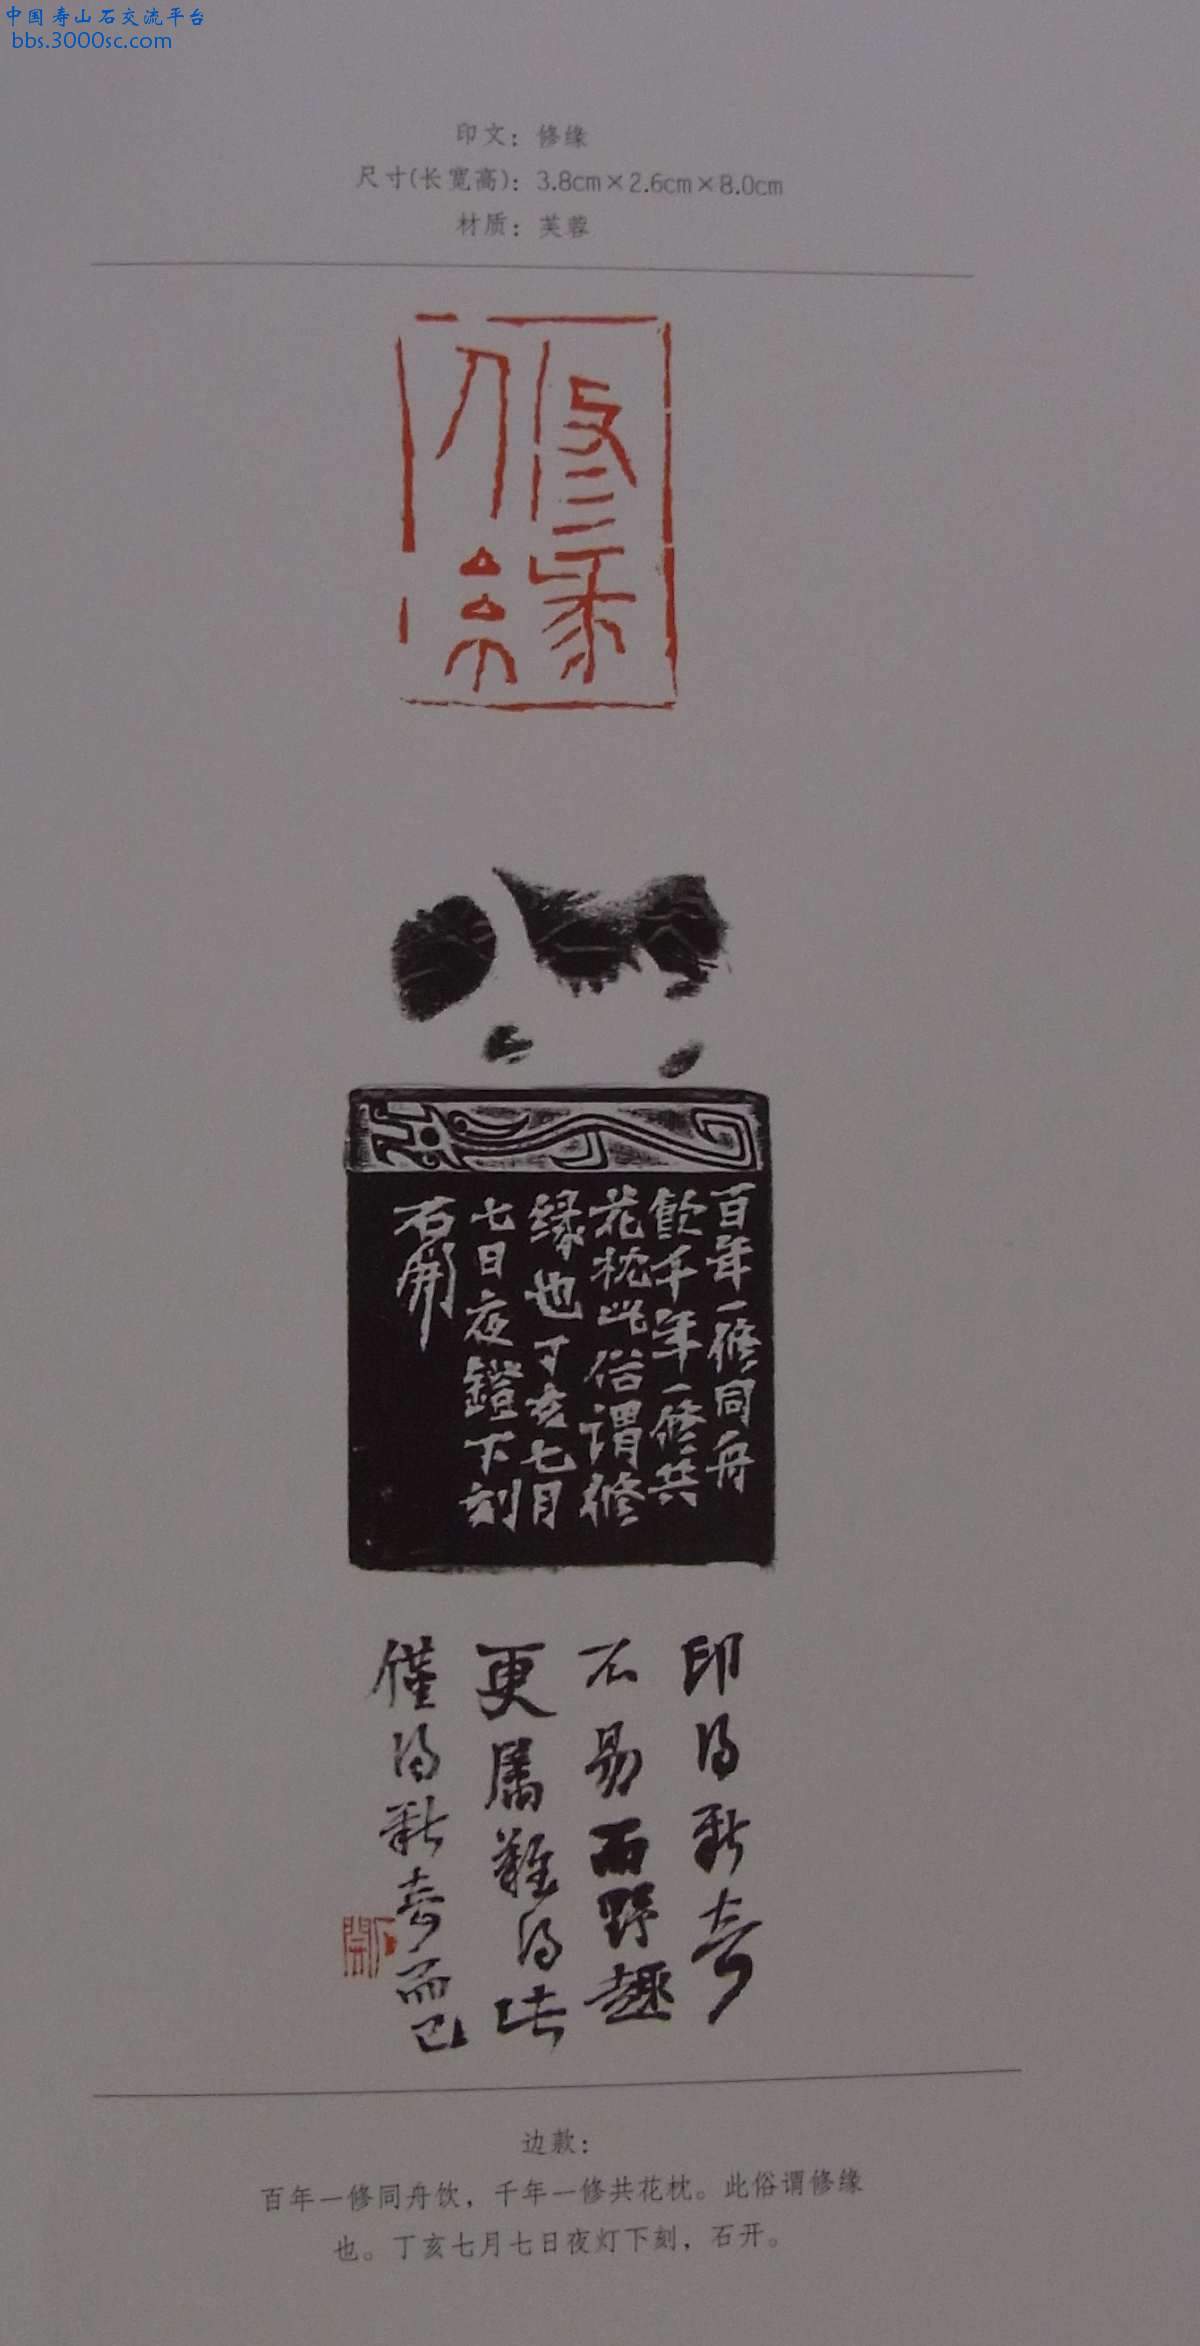 中国寿山石交流平台
bbs.3000sc.com
印文：修缘
尺寸(长宽高)：3.8cm×2.6cm×8.0cm
材质：芙蓉
修緣
百年一修同舟
飲千年一修共
花枕此俗謂修
緣也丁亥七月
七日夜鐙下刻
石開
印得新奇
不易而野趣
更属難得此
僅得新奇而已
石開
边款：
百年一修同舟饮，千年一修共花枕。此俗谓修缘
也。丁亥七月七日夜灯下刻，石开。